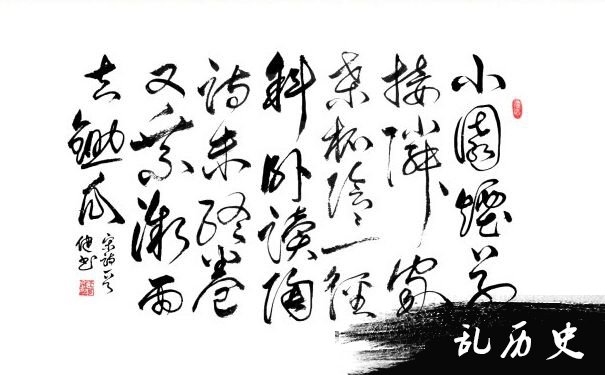 小園煙草
接隣家
桑柘陰々一徑
斜卧讀陶
詩未終卷
又乘微雨
去鋤瓜
宋詩一首
健書
乱历史